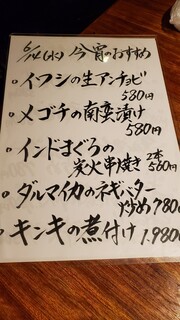 6/14(水) 今宵のおすすめ
・イワシの生アンチョビ
580円
・メゴチの南蛮漬け
580円
・インドまぐろの
炭火串焼き 2本 560円
・ダルマイカのネギバター
炒め 780円
・キンキの煮付け 1.980円